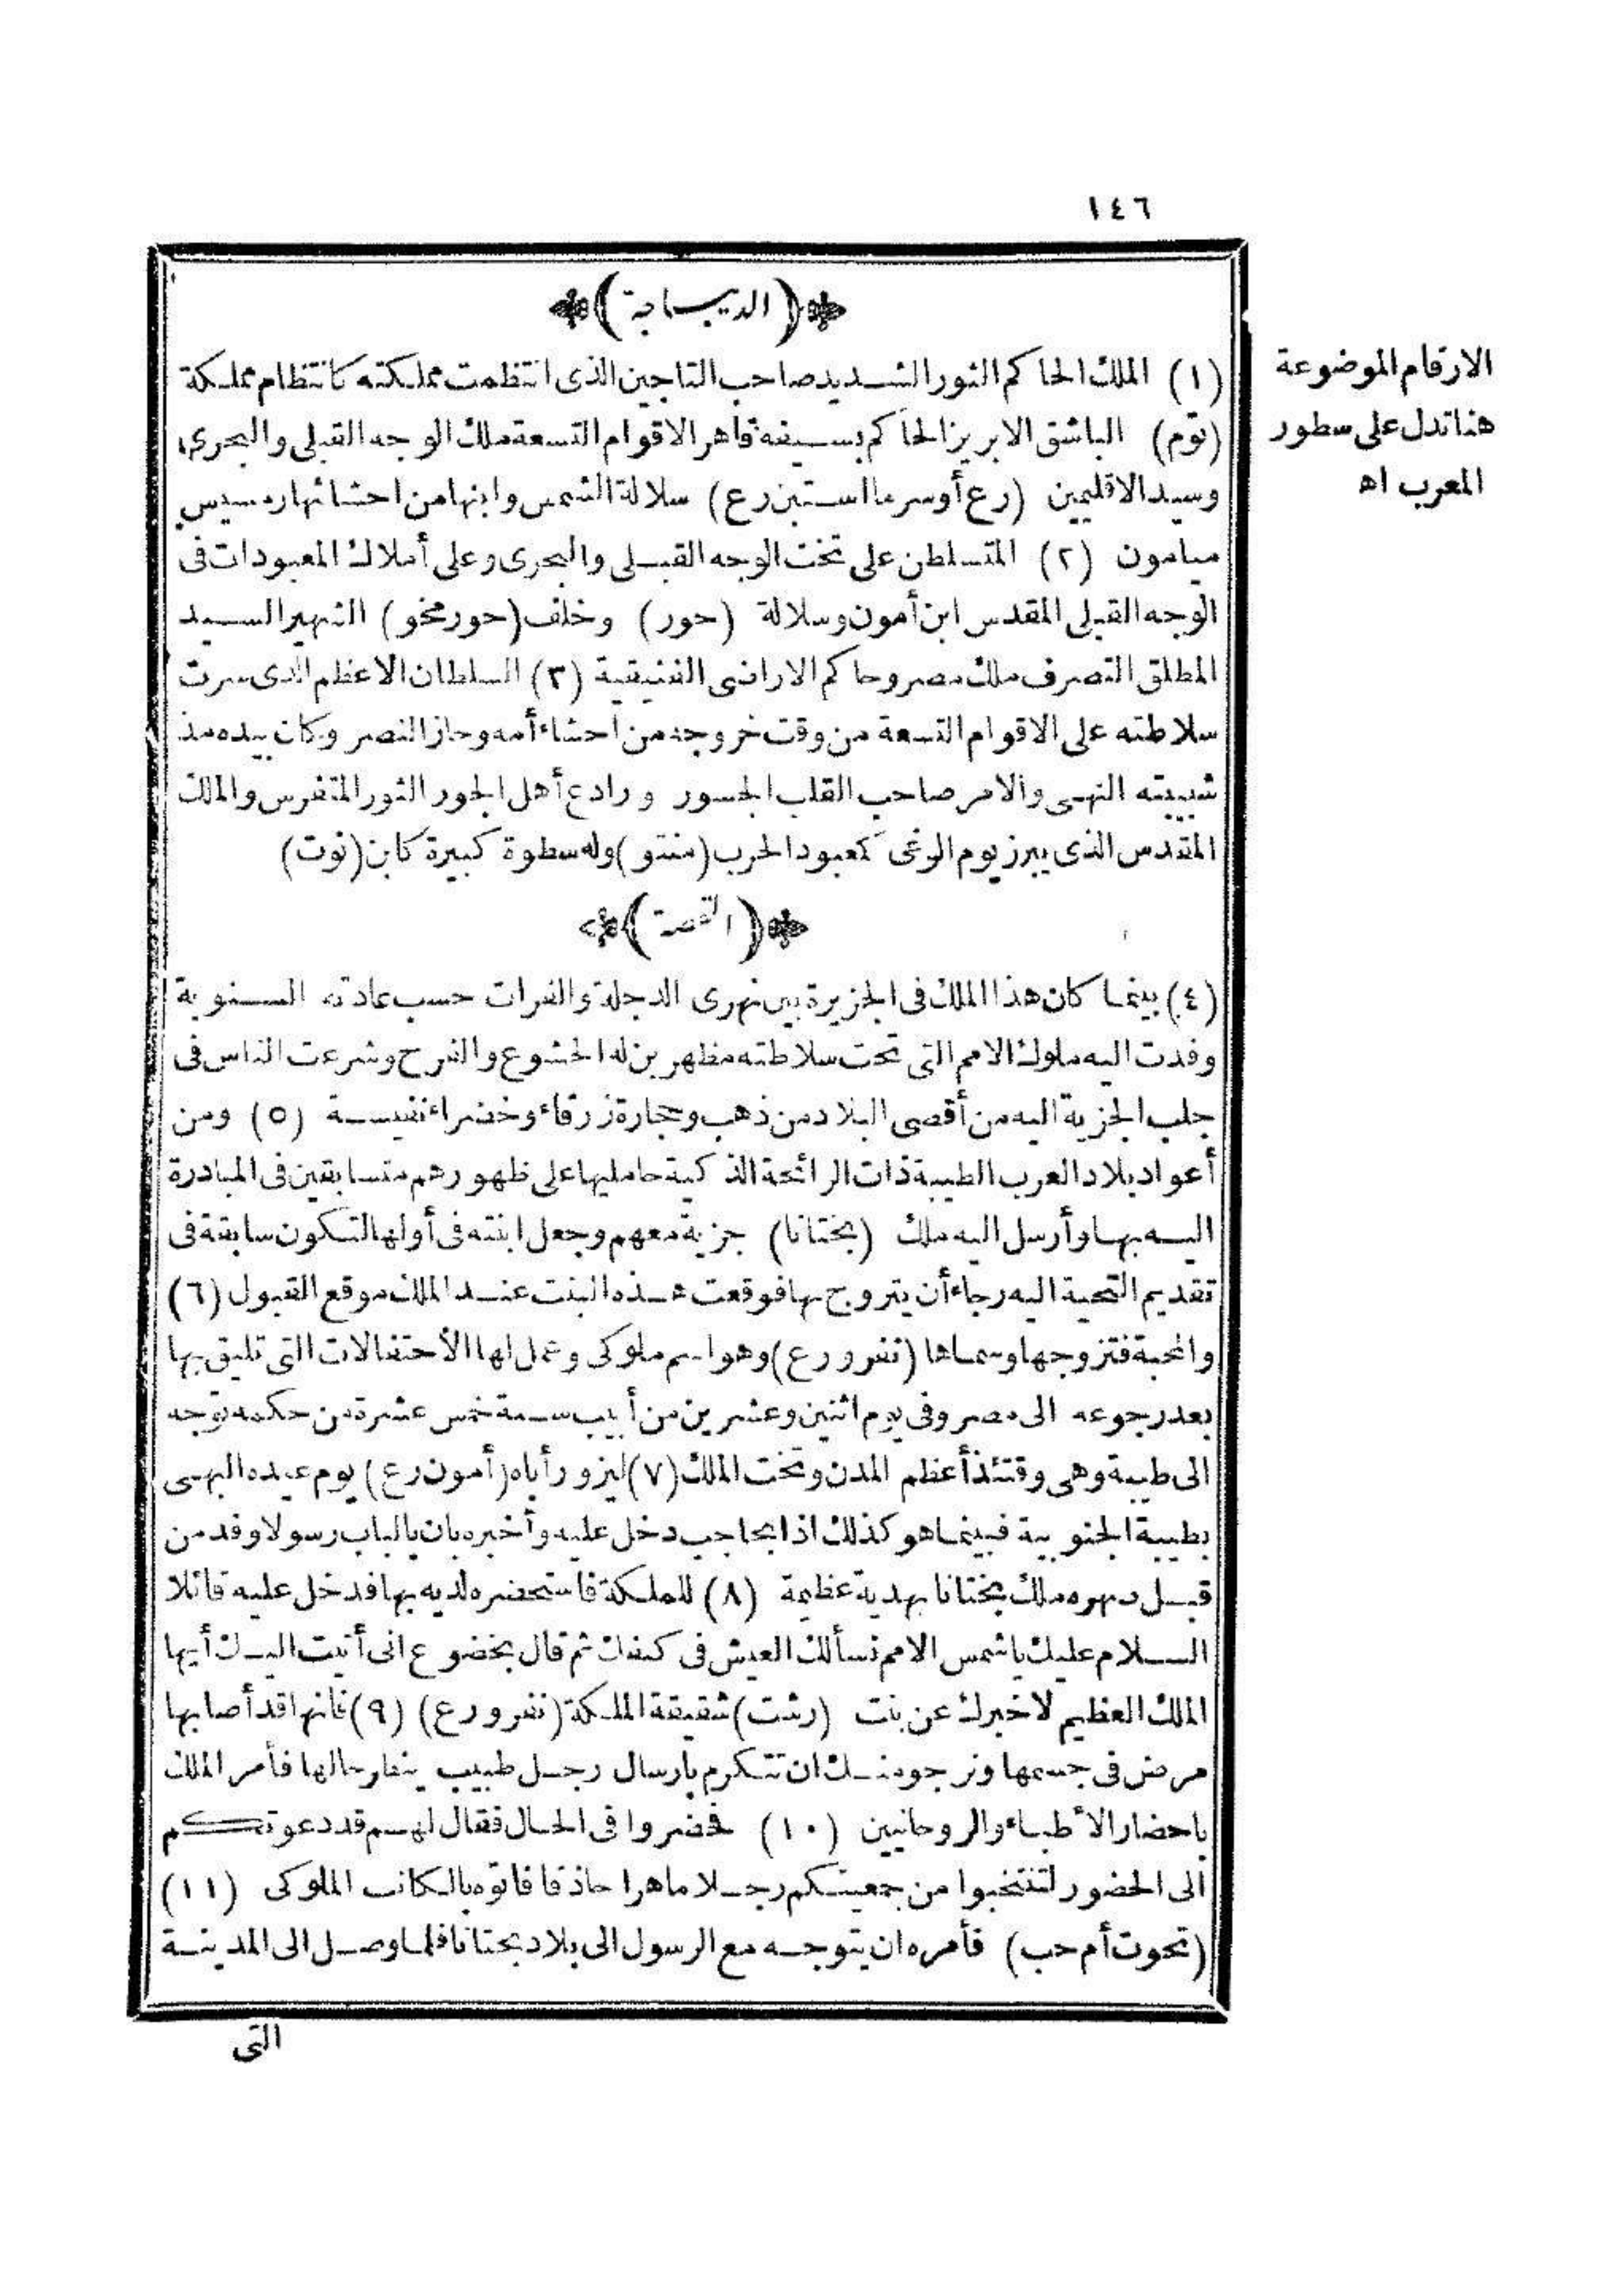 ١٤٦
(الديباجة)
(١) الملك الحاكم الثور الشديد صاحب التاجين الذى انتظمت مملكته كانتظام مملكة
(توم) الباشق الابريز الحاكم بسيفه قاهر الاقوام التسعة ملك الوجه القبلى والبحرى
وسيد الاقليمين (رع أوسر ما استبن رع) سلالة الشمس وابنها من احشائها رمسيس
ميامون (٢) المتسلطن على تخت الوجه القبلى والبحرى وعلى أملاك المعبودات فى
الوجه القبلى المقدس ابن أمون وسلالة (حور) وخلف (حور مخو) الشهير السيد
المطلق التصرف ملك مصر وحاكم الاراضى الفنيقية (٣) السلطان الاعظم الذى سرت
سلاطته على الاقوام التسعة من وقت خروجه من احشاء أمه وحاز النصر وكان بيده مذ
شبيبته النهى والامر صاحب القلب الجسور ورادع أهل الجور الثور المتفرس والملك
المقدس الذى يبرز يوم الوغى كمعبود الحرب (منتو) وله سطوة كبيرة كابن (نوت)
(القصة)
(٤) بينما كان هذا الملك فى الجزيرة بين نهرى الدجلة والفرات حسب عادته السنوية
وفدت اليه ملوك الامم التى تحت سلاطته مظهرين له الخشوع والفرح وشرعت الناس فى
جلب الجزية اليه من أقصى البلاد من ذهب وحجارة زرقاء وخضراء نفيسة (٥) ومن
أعواد بلاد العرب الطيبة ذات الرائحة الذكية حامليها على ظهورهم متسابقين فى المبادرة
اليه بها وأرسل اليه ملك (بختانا) جزية معهم وجعل ابنته فى أولها لتكون سابقة فى
تقديم التحية اليه رجاء أن يتزوج بها فوقعت هذه البنت عند الملك موقع القبول (٦)
والمحبة فتزوجها وسماها (نفرو رع) وهو اسم ملوكى وعمل لها الاحتفالات التى تليق بها
بعد رجوعه الى مصر وفى يوم اثنين وعشرين من أبيب سنة خمس عشرة من حكمه توجه
الى طيبة وهى وقتئذ أعظم المدن وتخت الملك (٧) ليزور أباه (أمون رع) يوم عيده البهى
بطيبة الجنوبية فبينما هو كذلك اذا بحاجب دخل عليه وأخبره بان بالباب رسولا وفد من
قبل صهره ملك بختانا بهدية عظيمة (٨) للملكة فاستحضره لديه بها فدخل عليه قائلا
السلام عليك يا شمس الامم نسألك العيش فى كنفك ثم قال بخضوع انى أتيت اليك أيها
الملك العظيم لاخبرك عن بنت (رشت) شقيقة الملكة (نفرو رع) (٩) فانها قد أصابها
مرض فى جسمها ونرجو منك ان تتكرم بارسال رجل طبيب ينظر حالها فأمر الملك
باحضار الأطباء والروحانيين (١٠) فحضروا فى الحال فقال لهم قد دعوتكم
الى الحضور لتنتخبوا من جمعيتكم رجلا ماهرا حاذقا فاتوه بالكاتب الملوكى (١١)
(تحوت أم حب) فأمره ان يتوجه مع الرسول الى بلاد بختانا فلما وصل الى المدينة
التى
الارقام الموضوعة
هنا تدل على سطور
المعرب اه